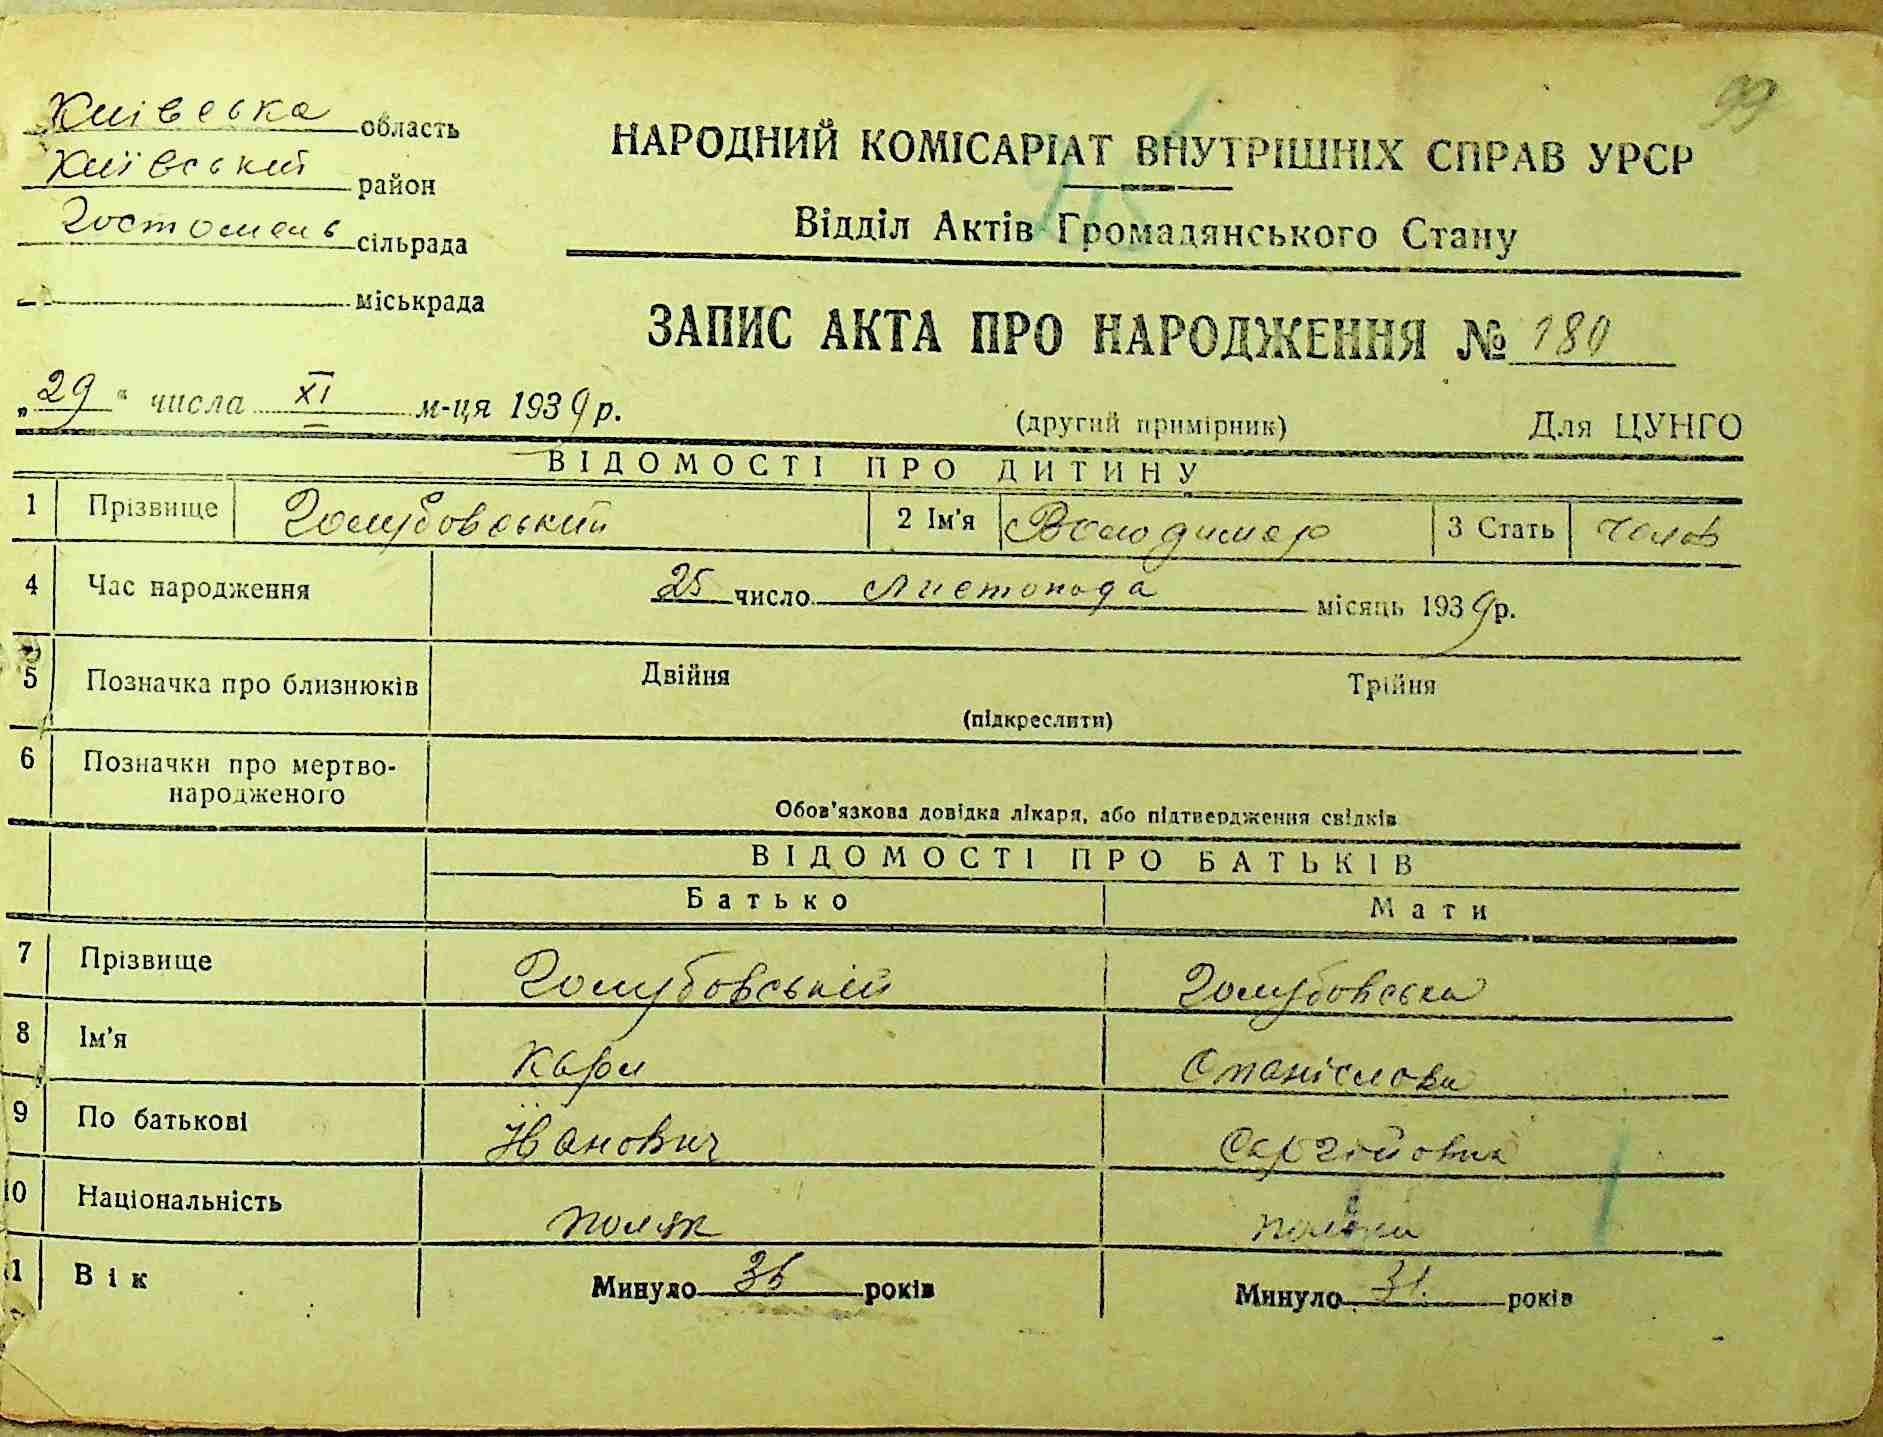 99
Київська область
Київський район
Гостомель сільрада
міськрада
НАРОДНИЙ КОМІСАРІАТ ВНУТРІШНІХ СПРАВ УРСР
Відділ Актів Громадянського Стану
ЗАПИС АКТА ПРО НАРОДЖЕННЯ № 180
„29“ числа XI м-ця 1939 р.
(другий примірник) Для ЦУНГО
ВІДОМОСТІ ПРО ДИТИНУ
1 Прізвище Голубовський 2 Ім'я Володимер 3 Стать чолов
4 Час народження 25 число Листопада місяць 1939р.
5 Позначка про близнюків Двійня Трійня
(підкреслити)
6 Позначки про мертво-
народженого
Обов'язкова довідка лікаря, або підтвердження свідків
ВІДОМОСТІ ПРО БАТЬКІВ
Батько Мати
7 Прізвище Голубовській Голубовська
8 Ім'я Карл Станіслова
9 По батькові Іванович Сергійовна
10 Національність поляк полька
11 Вік Минуло 36 років Минуло 31 років